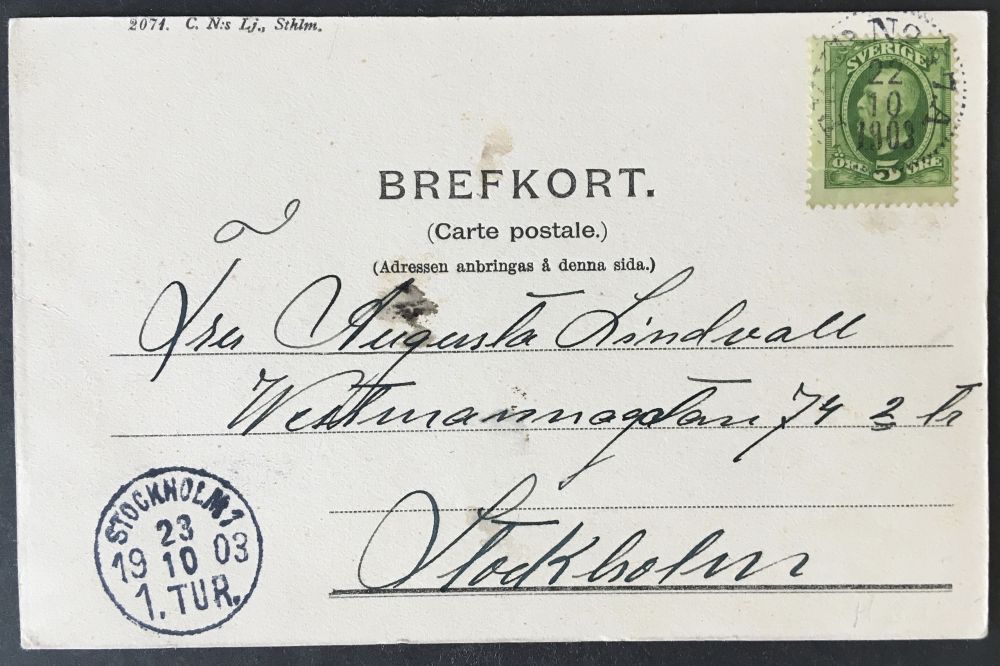 2071. C. N:s Lj., Sthlm.
SVERIGE
22
10
1903
ÖRE 5 ÖRE
BREFKORT.
(Carte postale.)
(Adressen anbringas å denna sida.)
Fru Augusta Lindvall
Westmannagatan 74 2 tr
Stockholm
STOCKHOLM 1
23
19 10 03
1. TUR.